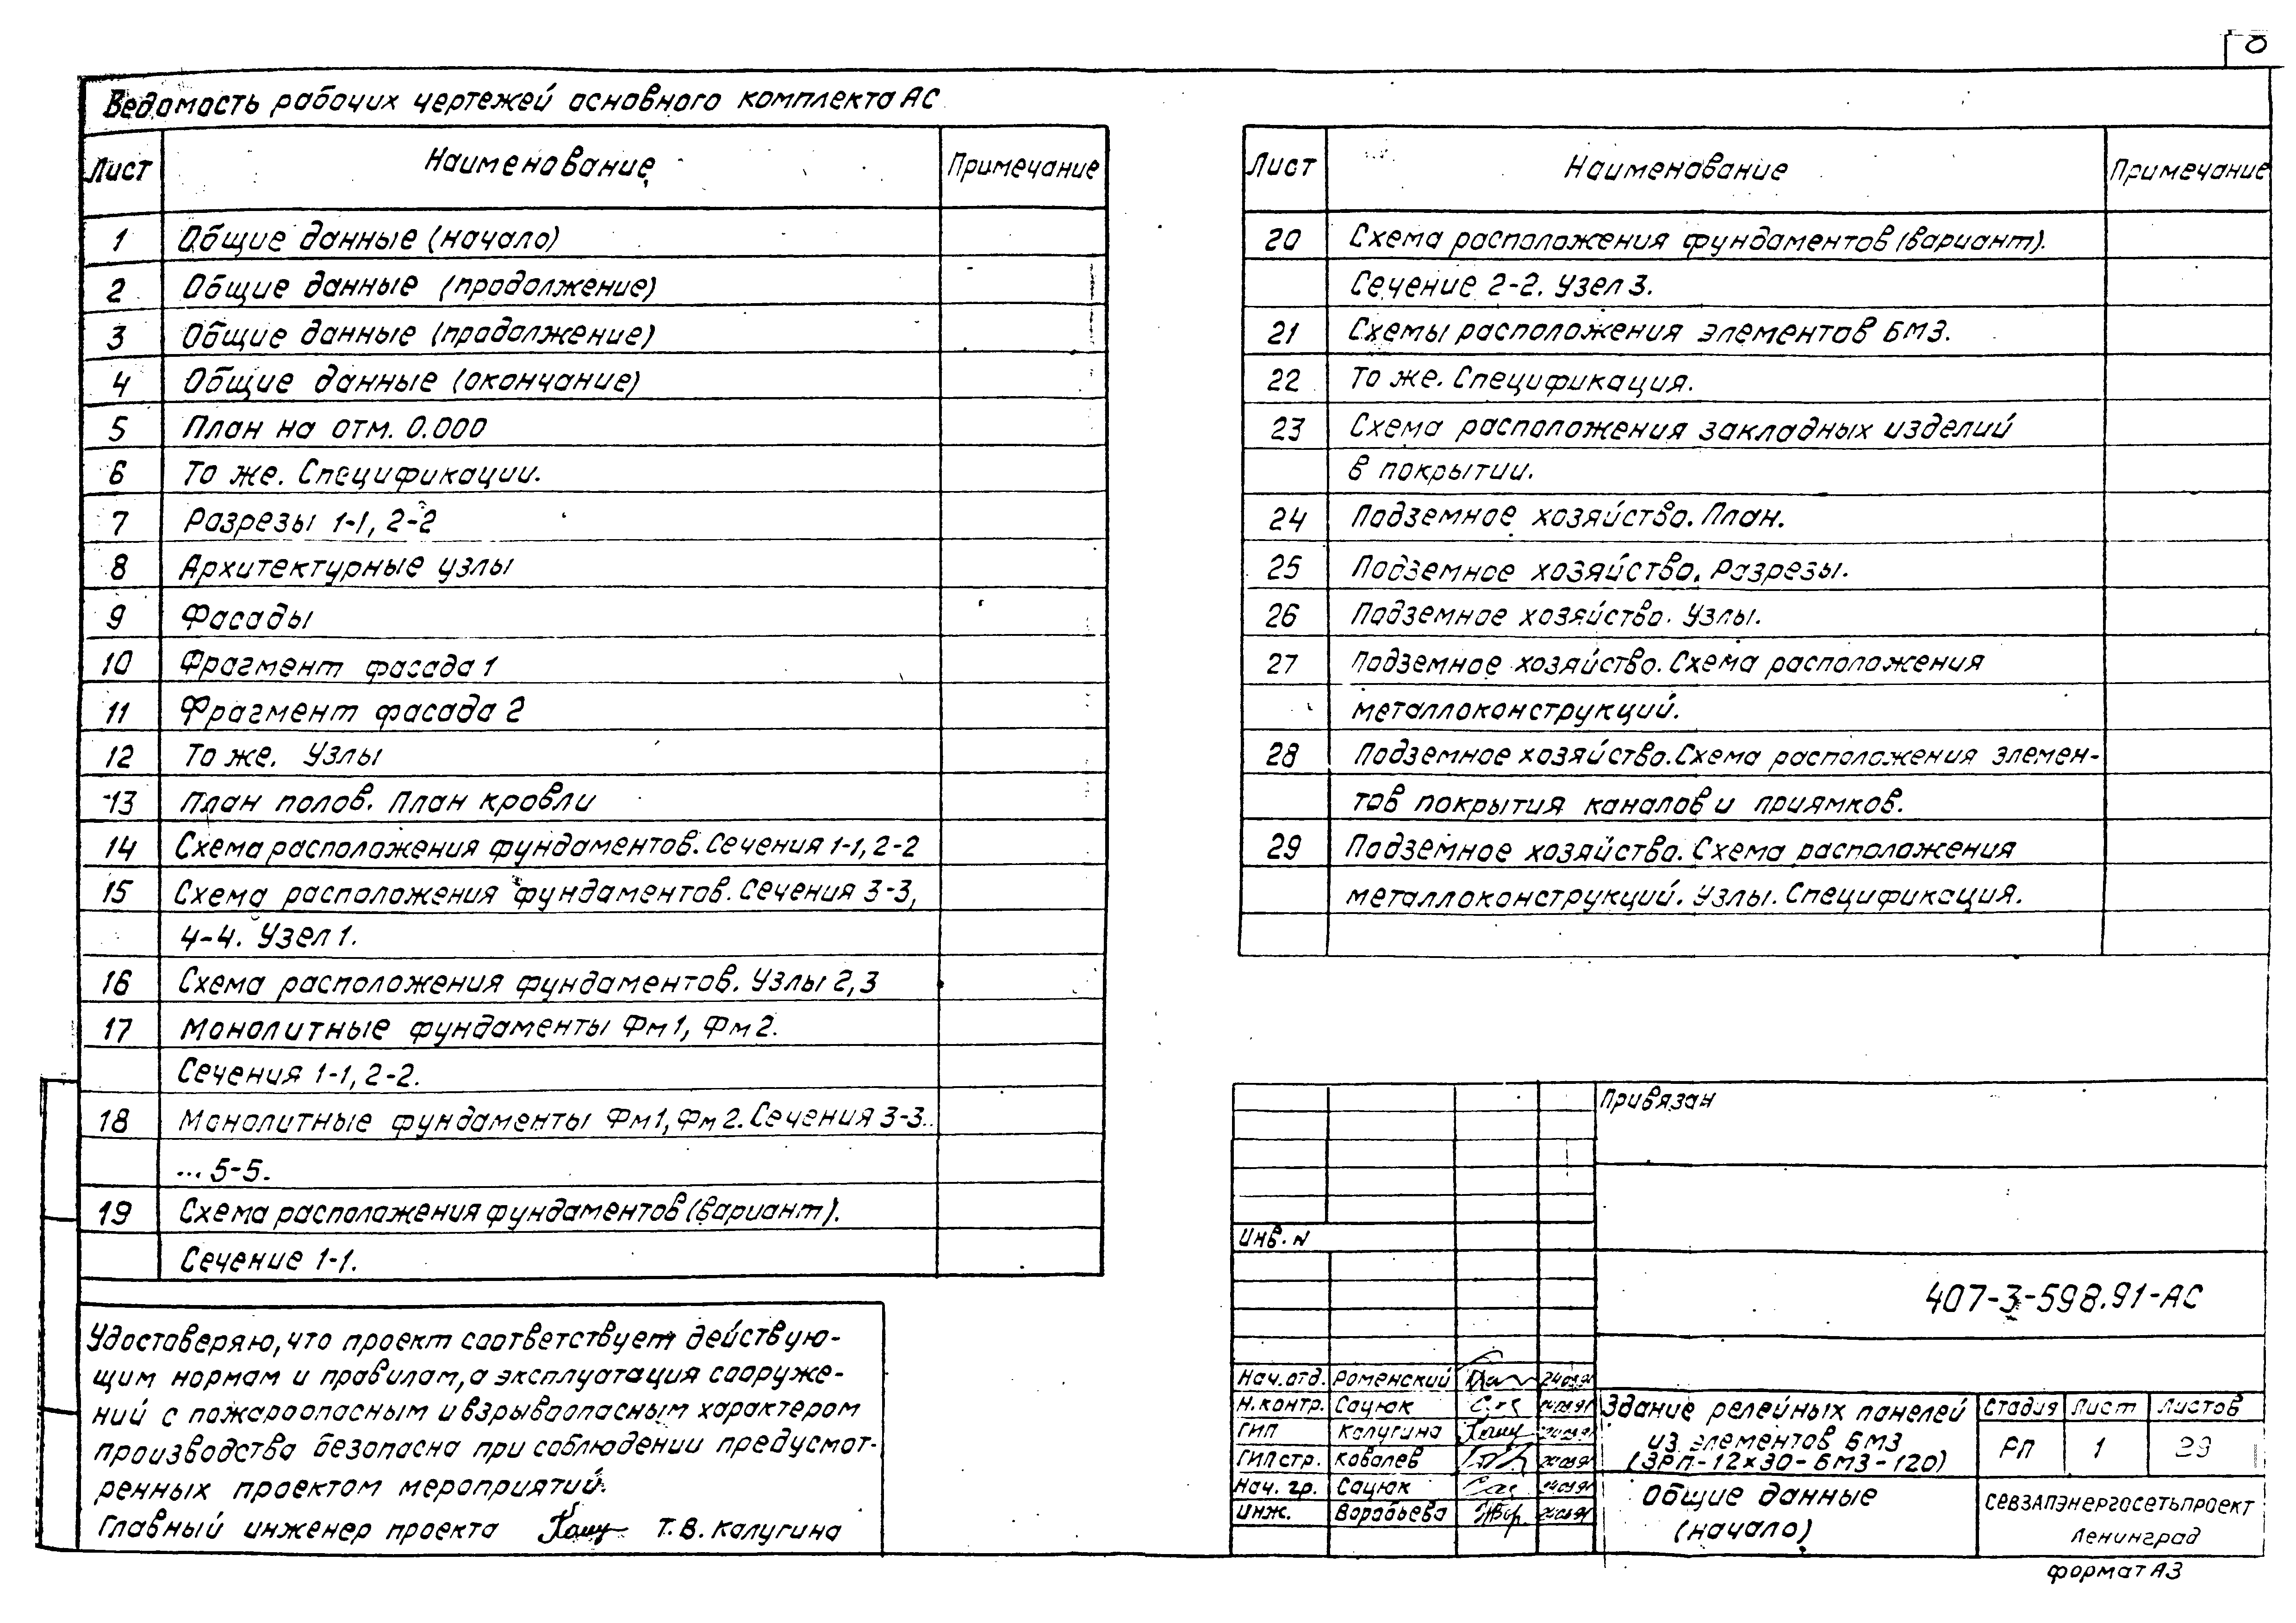 8
Ведомость рабочих чертежей основного комплекта АС
Лист Наименование Примечание
1 Общие данные (начало)
2 Общие данные (продолжение)
3 Общие данные (продолжение)
4 Общие данные (окончание)
5 План на отм. 0.000
6 То же. Спецификации.
7 Разрезы 1-1, 2-2
8 Архитектурные узлы
9 Фасады
10 Фрагмент фасада 1
11 Фрагмент фасада 2
12 То же. Узлы
13 План полов. План кровли
14 Схема расположения фундаментов. Сечения 1-1, 2-2
15 Схема расположения фундаментов. Сечения 3-3,
4-4. Узел 1.
16 Схема расположения фундаментов. Узлы 2,3
17 Монолитные фундаменты Фм1, Фм2.
Сечения 1-1, 2-2.
18 Монолитные фундаменты Фм1, Фм2. Сечения 3-3..
... 5-5.
19 Схема расположения фундаментов (вариант).
Сечение 1-1.
Лист Наименование Примечание
20 Схема расположения фундаментов (вариант).
Сечение 2-2. Узел 3.
21 Схемы расположения элементов БМЗ.
22 То же. Спецификация.
23 Схема расположения закладных изделий
в покрытии.
24 Подземное хозяйство. План.
25 Подземное хозяйство. Разрезы.
26 Подземное хозяйство. Узлы.
27 Подземное хозяйство. Схема расположения
металлоконструкций.
28 Подземное хозяйство. Схема расположения элемен-
тов покрытия каналов и приямков.
29 Подземное хозяйство. Схема расположения
металлоконструкций. Узлы. Спецификация.
Удостоверяю, что проект соответствует действую-
щим нормам и правилам, а эксплуатация сооруже-
ний с пожароопасным и взрывоопасным характером
производства безопасна при соблюдении предусмот-
ренных проектом мероприятий.
Главный инженер проекта Т.В. Калугина
Привязан
Инв. N
407-3-598.91-АС
Нач. отд. Роменский 24.09.91
Н.контр. Сацюк
ГИП Калугина
ГИП стр. Ковалев
Нач. гр. Сацюк
Инж. Воробьева
Здание релейных панелей
из элементов БМЗ
(ЗРП-12×30-БМЗ-120)
Стадия Лист Листов
РП 1 29
Общие данные
(начало)
СЕВЗАПЭНЕРГОСЕТЬПРОЕКТ
Ленинград
формат А3